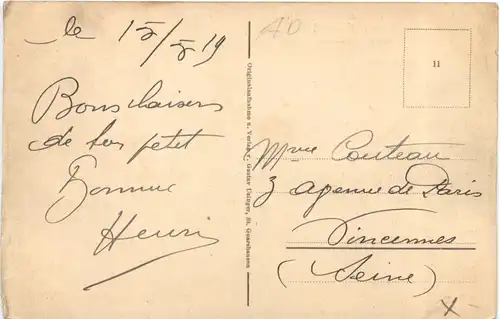 le 15/5 19
Bons baisers
de ton petit
Bonmme
Henri
Originalaufnahme u. Verlag v. Gustav Uainger, St. Goarshausen
AD
11
Mme Couteau
3 avenue de Paris
Vincennes
(Seine)
X